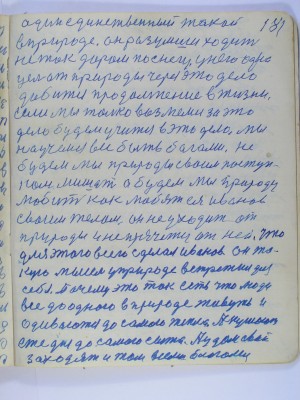 181
один единственный такой
в природе, он разумеи ходит
не так даром по снегу, у него одно
цель от природы через это дело
добится продолжение в жизни,
если мы только возмемси за это
дело будем учится в это дело, мы
научимси все быть богами, не
будем мы природы своим поступ-
ком мишат а будем мы природу
любит как любится иванов
своим телом, он не уходит от
природы и не прячится от ней, что
для этого всего сделал иванов. Он та-
кую мысел у природе встретил для
себя. Почему это так есть что люди
все до одного в природе живут и
одиваются до самого тепла. А кушают
сте дня до самого сыта. А у дом свой
заходят и там всеми благами